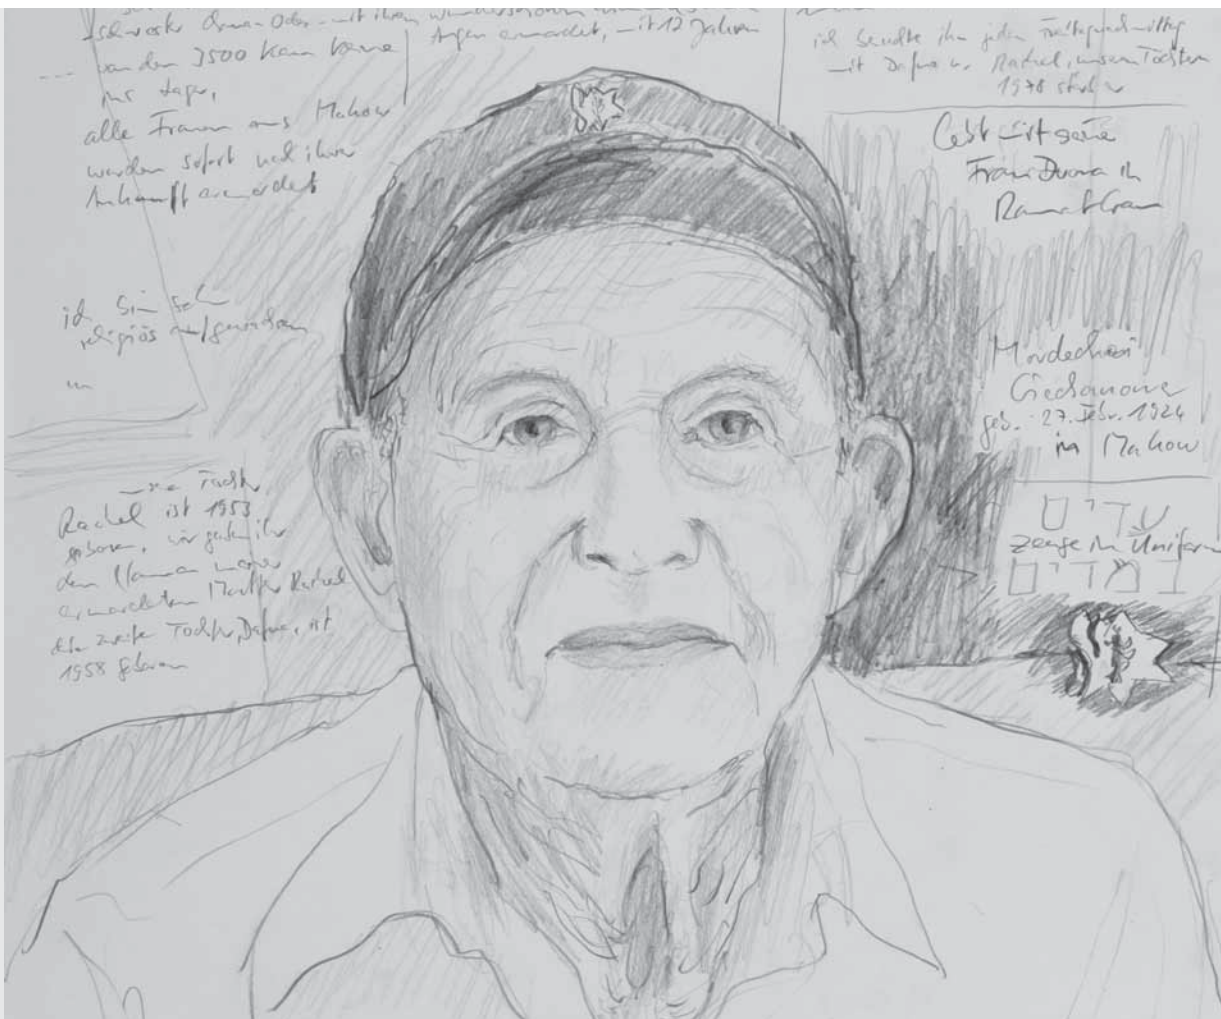 von den 3500 kam keine
ins Lager,
alle Frauen aus Makow
wurden sofort nach ihrer
Ankunft ermordet
Augen ermordet, mit 12 Jahren
ich besuchte ihn jeden Freitagnachmittag
mit Dafna u. Rachel, unseren Töchtern
1978 starb er
Lebt mit seine
Frau Duora in
Ramat Gan
ich bin sehr
religiös aufgewachsen
Mordechai
Ciechanower
geb. 27. Febr. 1924
in Makow
meine Tochter
Rachel ist 1953
geboren, wir gaben ihr
den Namen meiner
ermordeten Mutter Rachel
die zweite Tochter, Dafna, ist
1958 geboren
עדים
Zeuge in Uniform
במדים